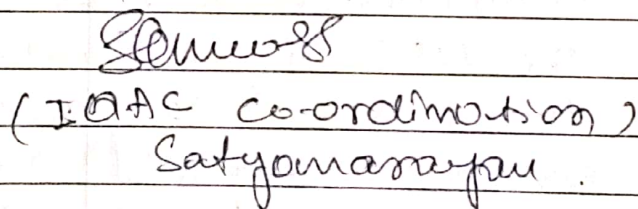 (IQAC Co-ordination)
Satyanarayan.